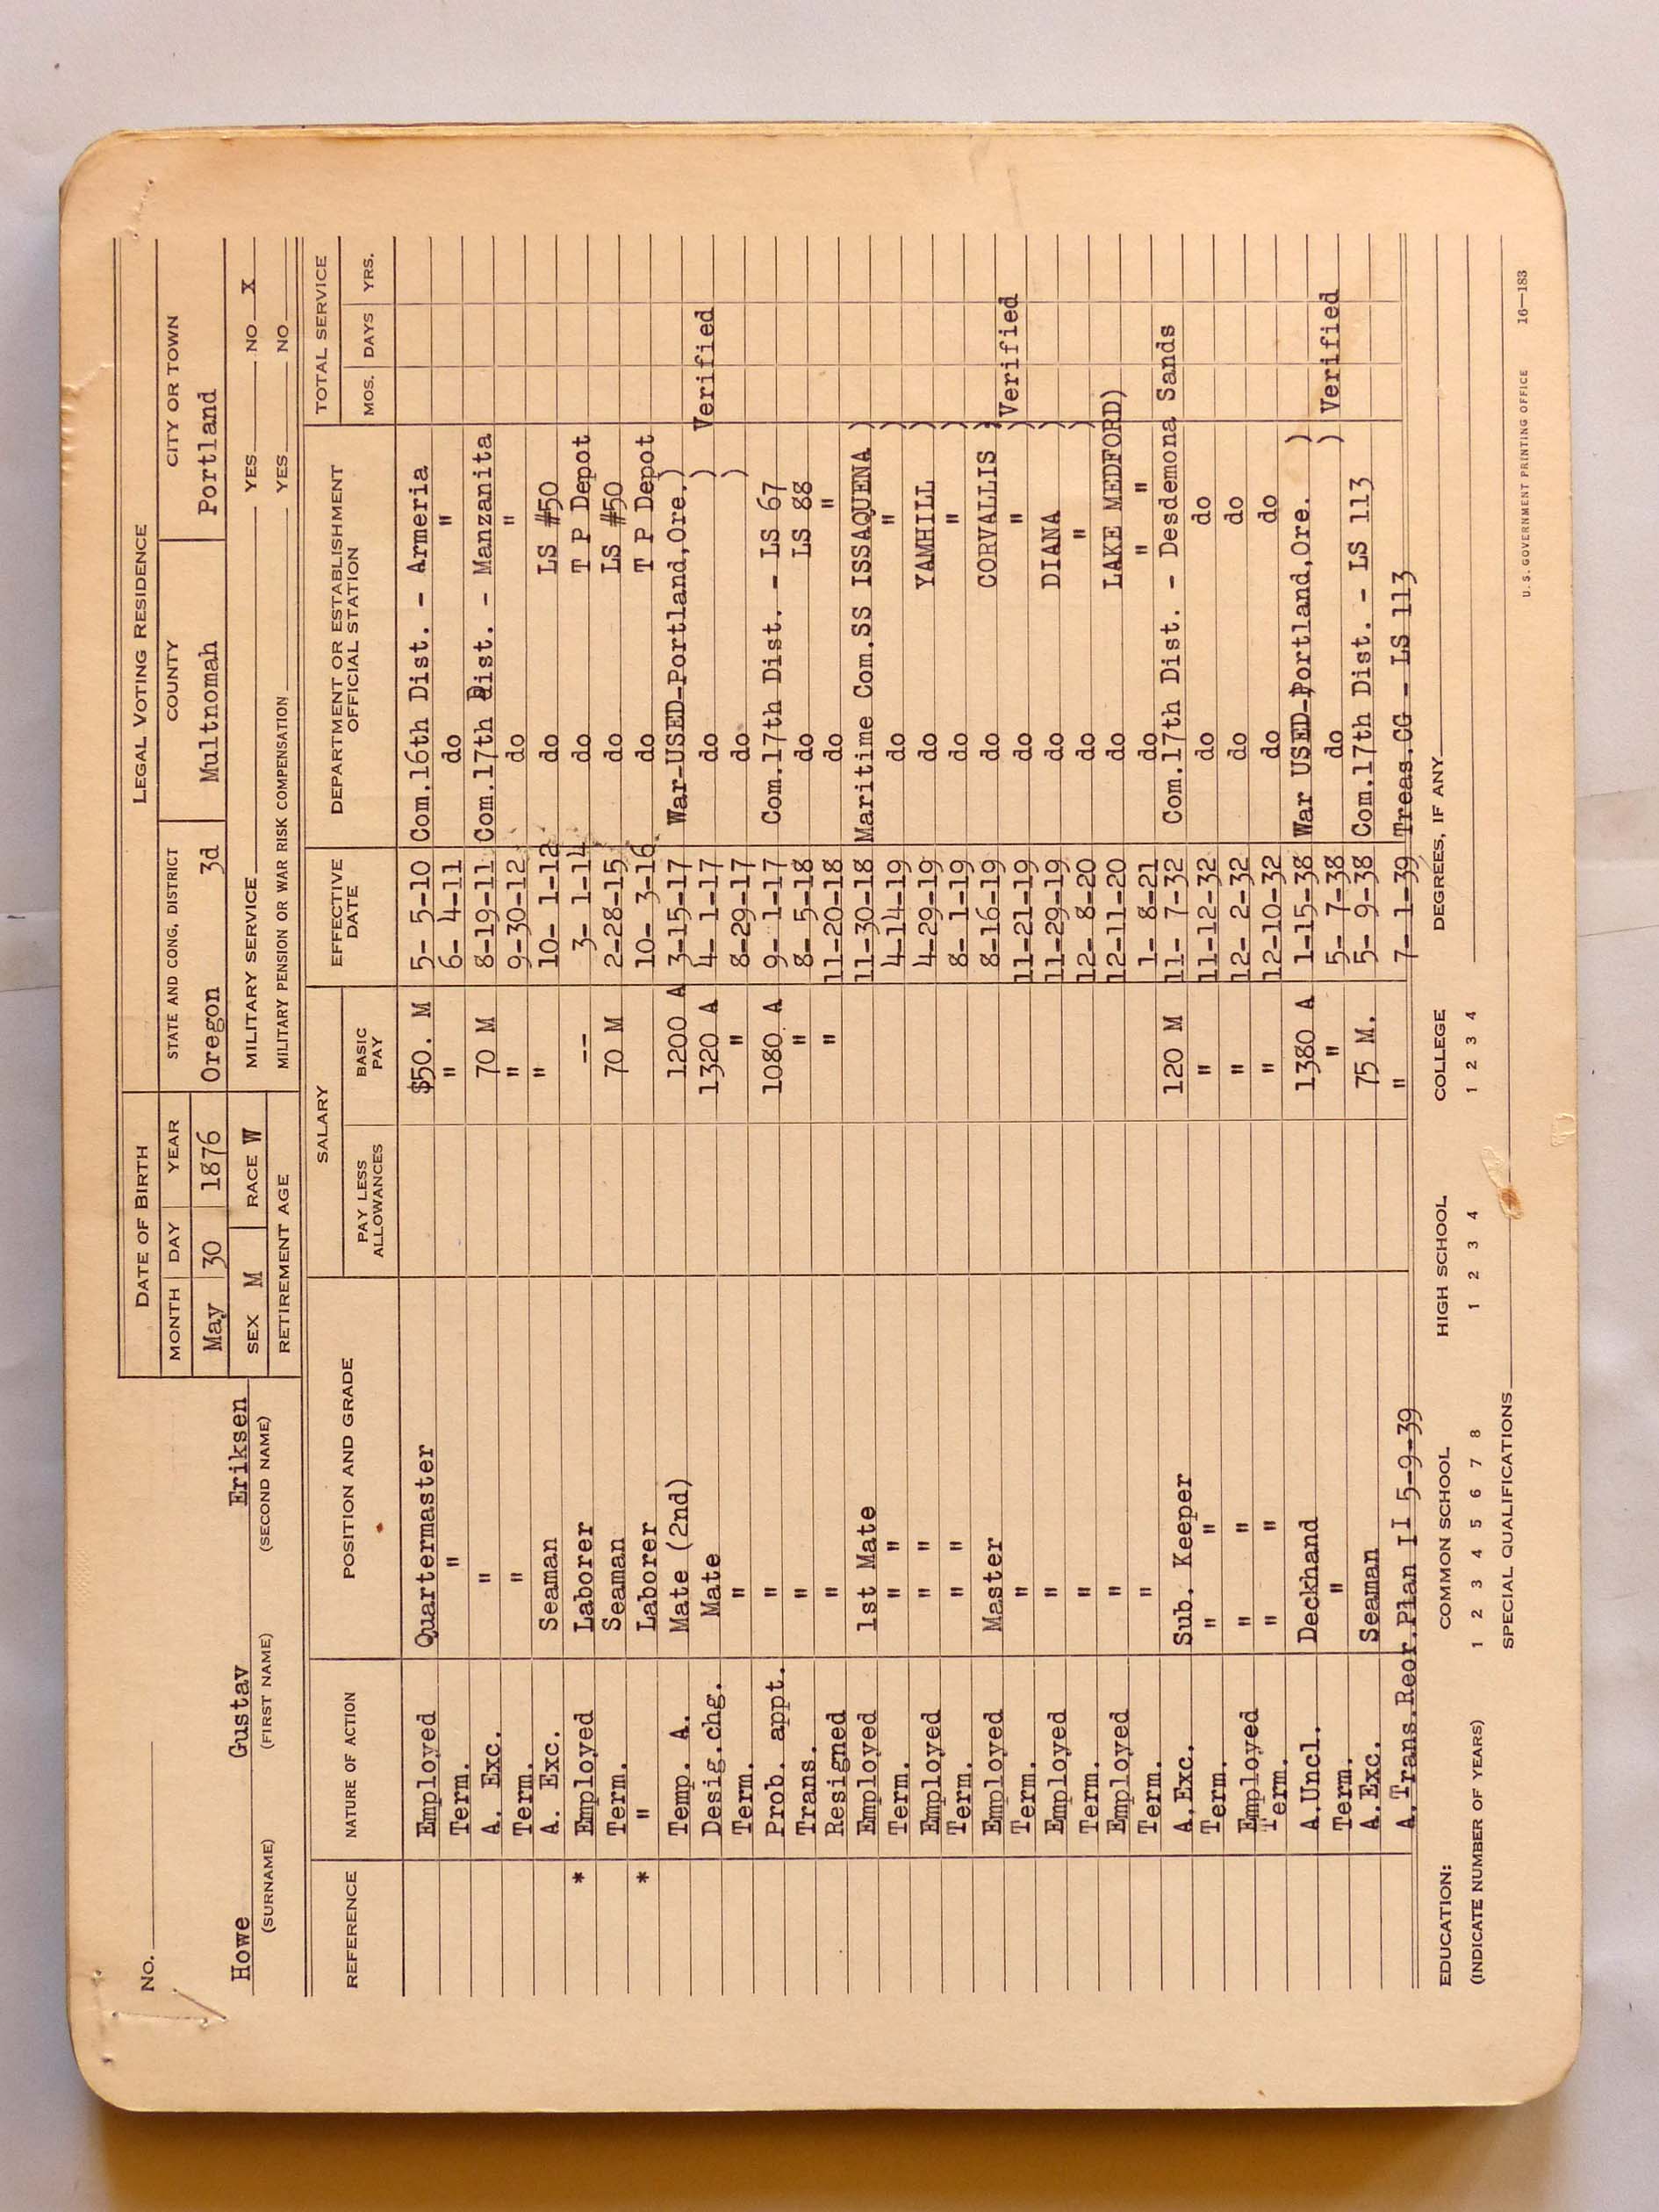 No.
DATE OF BIRTH LEGAL VOTING RESIDENCE
MONTH DAY YEAR STATE AND CONG. DISTRICT COUNTY CITY OR TOWN
May 30 1876 Oregon 3d Multnomah Portland
Howe Gustav Eriksen
(SURNAME) (FIRST NAME) (SECOND NAME)
SEX M RACE W MILITARY SERVICE YES NO X
RETIREMENT AGE MILITARY PENSION OR WAR RISK COMPENSATION YES NO
REFERENCE NATURE OF ACTION POSITION AND GRADE SALARY EFFECTIVE DATE DEPARTMENT OR ESTABLISHMENT OFFICIAL STATION TOTAL SERVICE
PAY LESS ALLOWANCES BASIC PAY MOS. DAYS YRS.
Employed Quartermaster $50. M 5- 5-10 Com.16th Dist. - Armeria
Term. " " 6- 4-11 do "
A. Exc. " 70 M 8-19-11 Com.17th Dist. - Manzanita
Term. " " 9-30-12 do "
A. Exc. Seaman " 10- 1-12 do LS #50
* Employed Laborer -- 3- 1-14 do T P Depot
Term. Seaman 70 M 2-28-15 do LS #50
* " Laborer 10- 3-16 do T P Depot
Temp. A. Mate (2nd) 1200 A 3-15-17 War-USED-Portland,Ore.)
Desig.chg. Mate 1320 A 4- 1-17 do ) Verified
Term. " " 8-29-17 do )
Prob. appt. " 1080 A 9- 1-17 Com.17th Dist. - LS 67
Trans. " " 8- 5-18 do LS 88
Resigned " " 11-20-18 do "
Employed 1st Mate 11-30-18 Maritime Com.SS ISSAQUENA )
Term. " " 4-14-19 do " )
Employed " " 4-29-19 do YAMHILL )
Term. " " 8- 1-19 do " )
Employed Master 8-16-19 do CORVALLIS ) Verified
Term. " 11-21-19 do " )
Employed " 11-29-19 do DIANA )
Term. " 12- 8-20 do " )
Employed " 12-11-20 do LAKE MEDFORD)
Term. " 1- 8-21 do " "
A.Exc. Sub. Keeper 120 M 11- 7-32 Com.17th Dist. - Desdemona Sands
Term. " " " 11-12-32 do do
Employed " " " 12- 2-32 do do
Term. " " " 12-10-32 do do
A.Uncl. Deckhand 1380 A 1-15-38 War USED-Portland,Ore. )
Term. " " 5- 7-38 do ) Verified
A.Exc. Seaman 75 M. 5- 9-38 Com.17th Dist. - LS 113
A.Trans.Reor.Plan II 5-9-39 " 7- 1-39 Treas.CG - LS 113
EDUCATION: COMMON SCHOOL HIGH SCHOOL COLLEGE DEGREES, IF ANY
(INDICATE NUMBER OF YEARS) 1 2 3 4 5 6 7 8 1 2 3 4 1 2 3 4
SPECIAL QUALIFICATIONS
U. S. GOVERNMENT PRINTING OFFICE 16—183